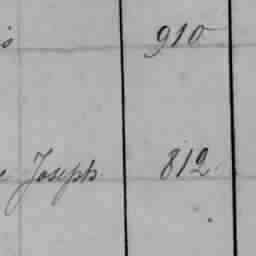 910
Joseph 812